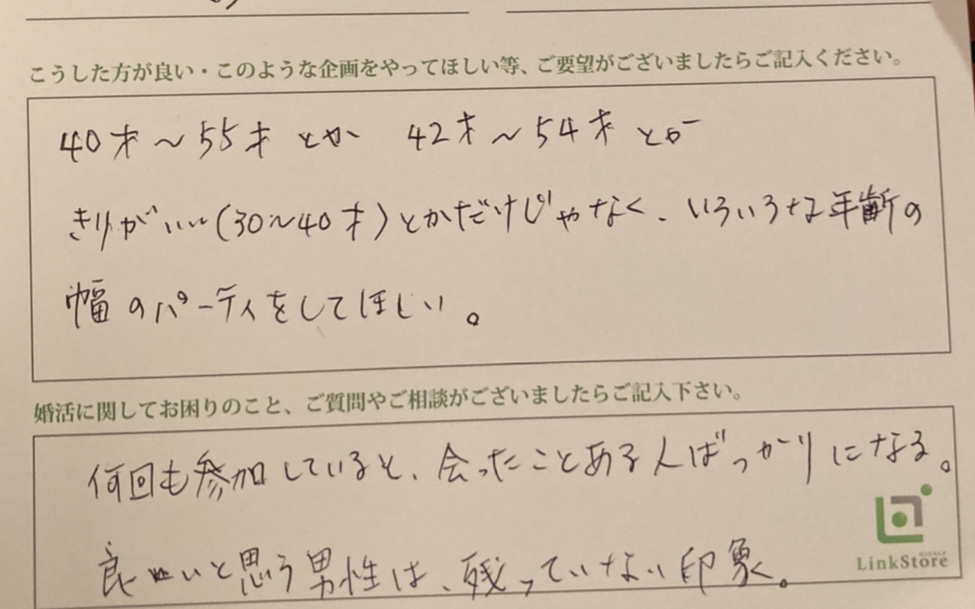 こうした方が良い・このような企画をやってほしい等、ご要望がございましたらご記入ください。
40才～55才とか 42才～54才とか
きりがいい(30～40才)とかだけじゃなく、いろいろな年齢の
幅のパーティをしてほしい。
婚活に関してお困りのこと、ご質問やご相談がございましたらご記入下さい。
何回も参加していると、会ったことある人ばっかりになる。
良いと思う男性は、残っていない印象。
LinkStore